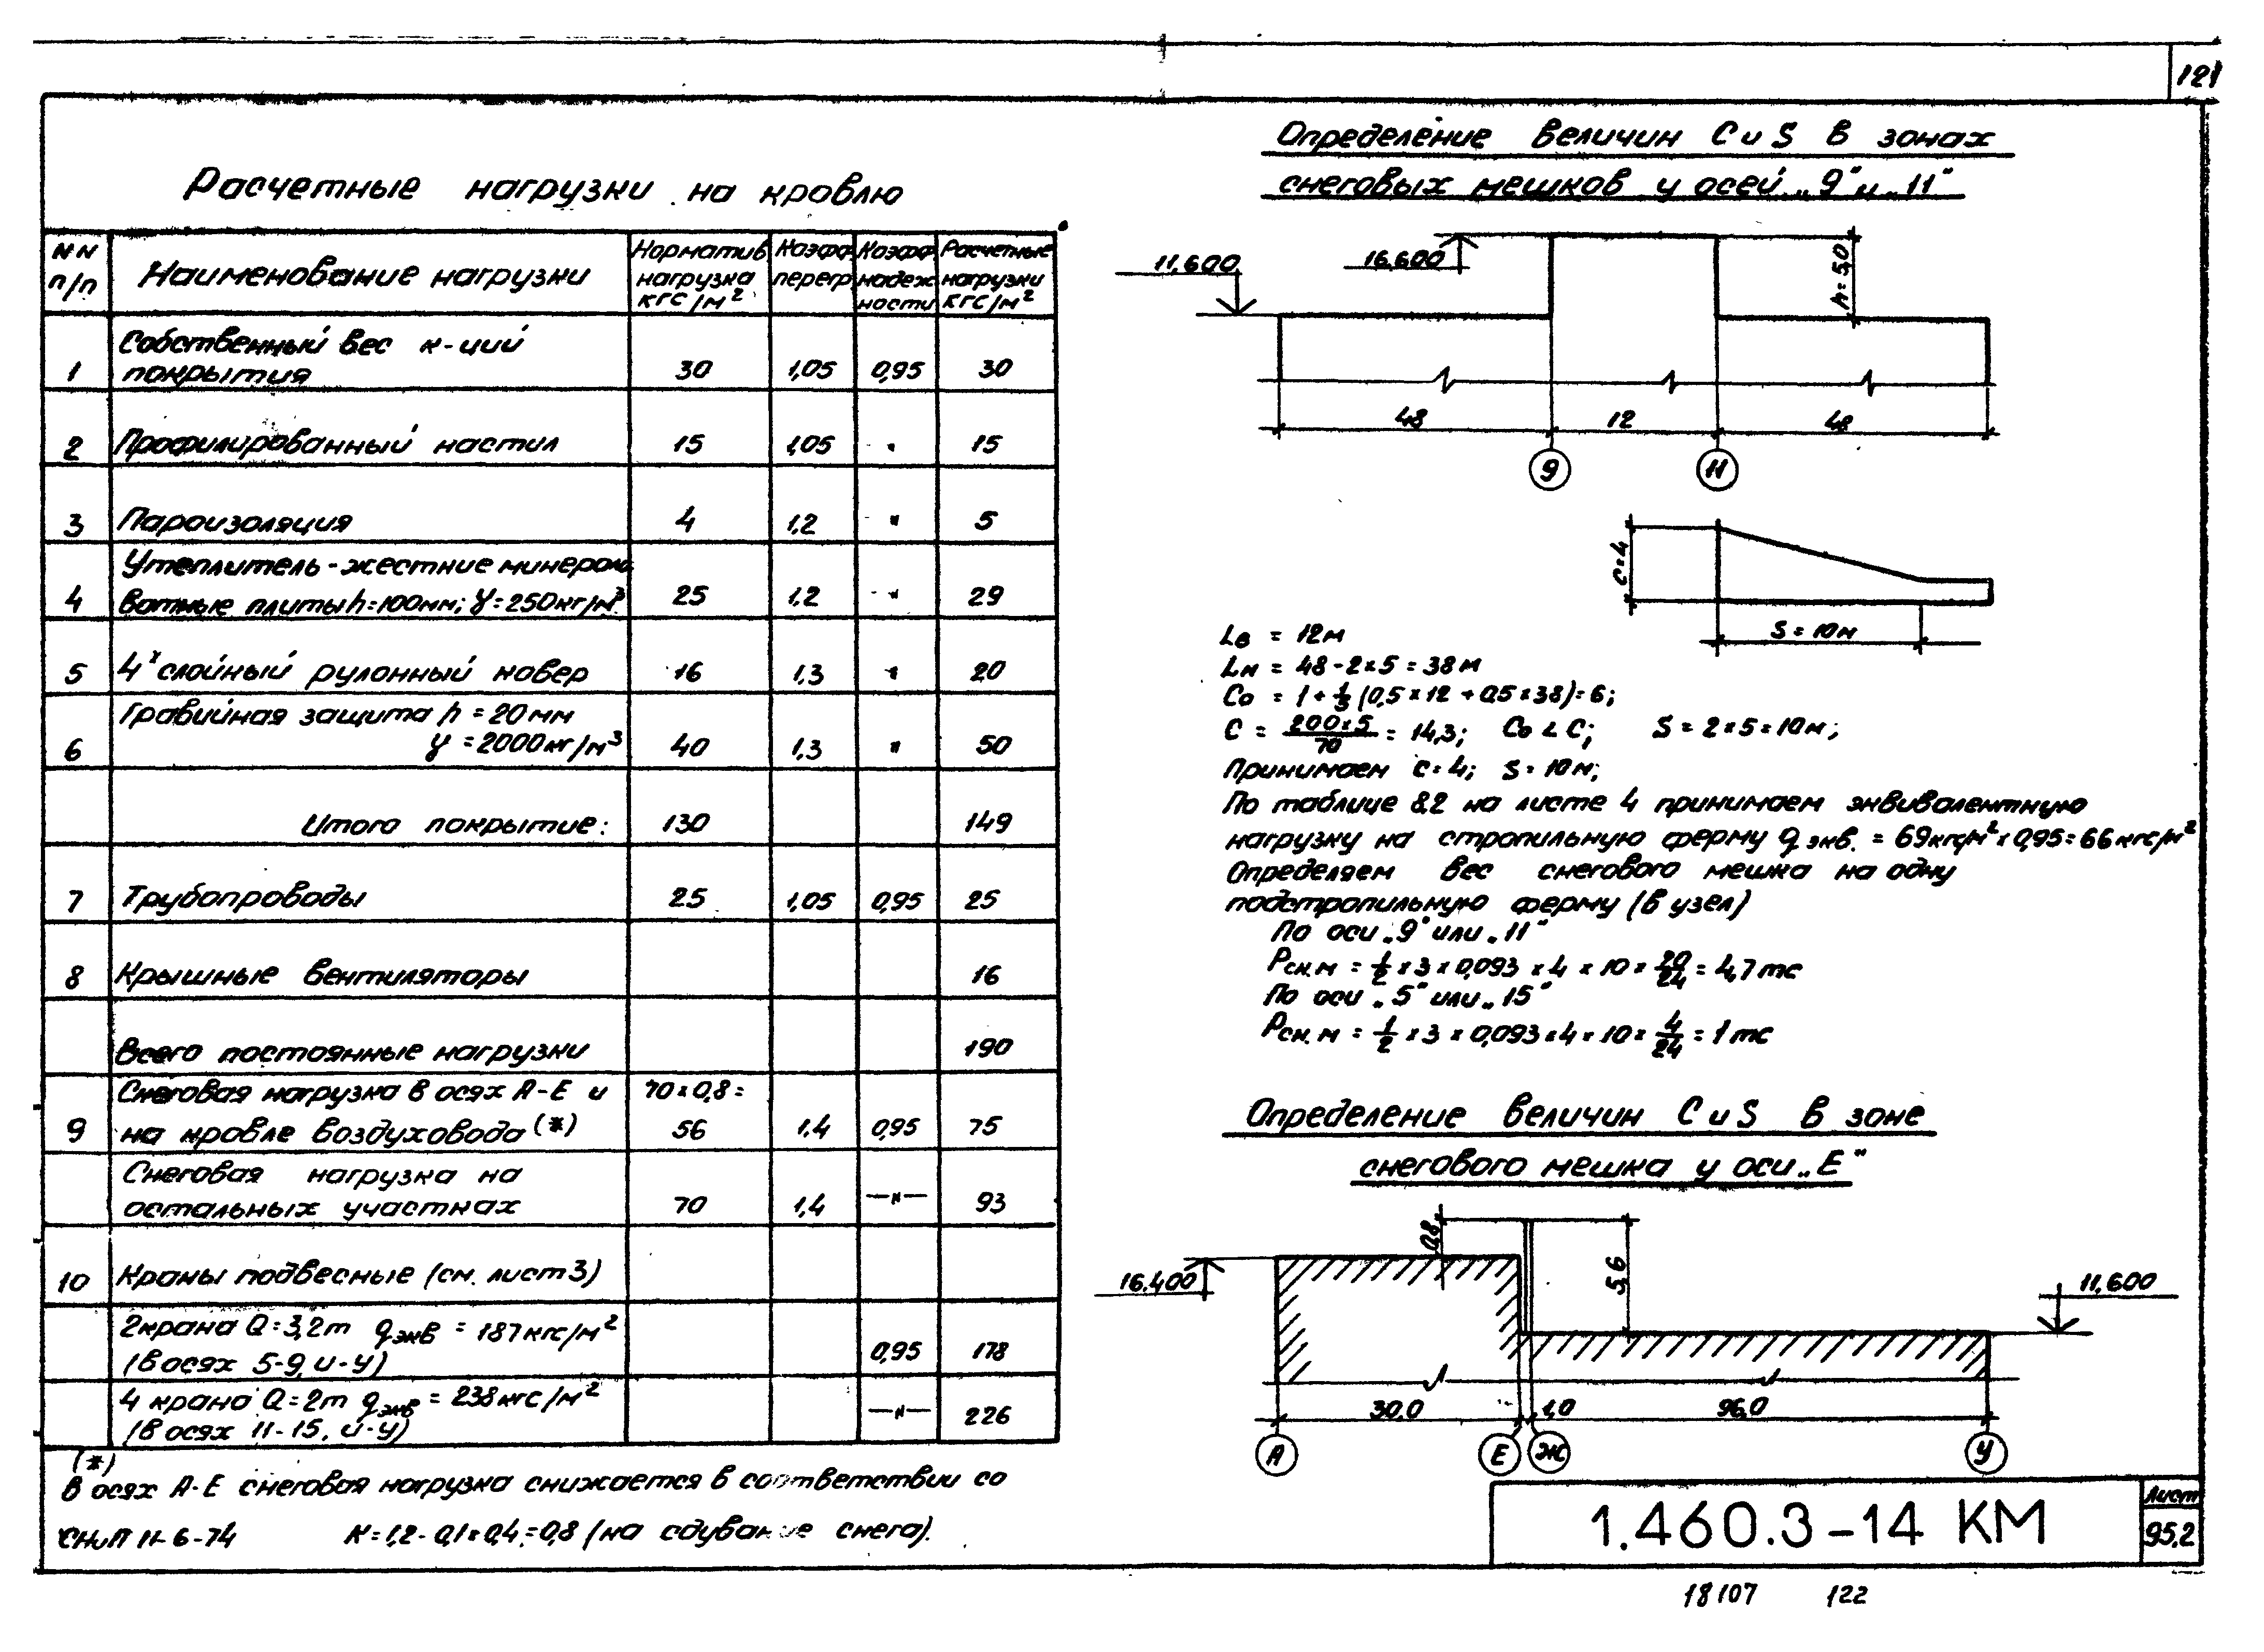 121
Расчетные нагрузки на кровлю
NN п/п
Наименование нагрузки
Норматив нагрузка кгс/м²
Коэфф. перегр
Коэфф. надеж ности
Расчетные нагрузки кгс/м²
1 Собственный вес к-ций покрытия 30 1,05 0,95 30
2 Профилированный настил 15 1,05 " 15
3 Пароизоляция 4 1,2 " 5
4 Утеплитель - жестние минерало
ватные плиты h=100мм; γ=250кг/м³ 25 1,2 " 29
5 4х слойный рулонный ковер 16 1,3 " 20
6 Гравийная защита h = 20 мм
γ = 2000кг/м³ 40 1,3 " 50
Итого покрытие: 130 149
7 Трубопроводы 25 1,05 0,95 25
8 Крышные вентиляторы 16
Всего постоянные нагрузки 190
9 Снеговая нагрузка в осях А-Е и
на кровле воздуховода (*) 70×0,8= 56 1,4 0,95 75
Снеговая нагрузка на
остальных участках 70 1,4 —"— 93
10 Краны подвесные (см. лист 3)
2 крана Q=3,2т qэкв = 187кгс/м²
(в осях 5-9, и-у) 0,95 178
4 крана Q=2т qэкв = 238кгс/м²
(в осях 11-15, и-у) —"— 226
(*)
В осях А-Е снеговая нагрузка снижается в соответствии со
СНиП II-6-74 К=1,2-0,1×0,4=0,8 (на сдувание снега).
Определение величин С и S в зонах
снеговых мешков у осей „9" и „11"
11,600
16.600
h=5,0
48 12 48
9 11
c=4
S = 10м
Lв = 12м
Lн = 48-2×5 = 38м
Со = 1 + 1/5 (0,5×12 + 0,5×38)=6;
С = 200×5/70 = 14,3; Со < С; S = 2×5=10м;
Принимаем с=4; S=10м;
По таблице 8.2 на листе 4 принимаем эквивалентную
нагрузку на стропильную ферму qэкв. = 69кгс/м²×0,95=66кгс/м²
Определяем вес снегового мешка на одну
подстропильную ферму (в узел)
По оси „9" или „11"
Рсн.м = 1/2 × 3 × 0,093 × 4 × 10 × 20/24 = 4,7 тс
По оси „5" или „15"
Рсн.м = 1/2 × 3 × 0,093 × 4 × 10 × 4/24 = 1 тс
Определение величин С и S в зоне
снегового мешка у оси „Е"
0,8
5,6
16.400
11,600
30,0 1,0 96,0
А Е Ж У
1.460.3-14 КМ
Лист
95.2
18107 122